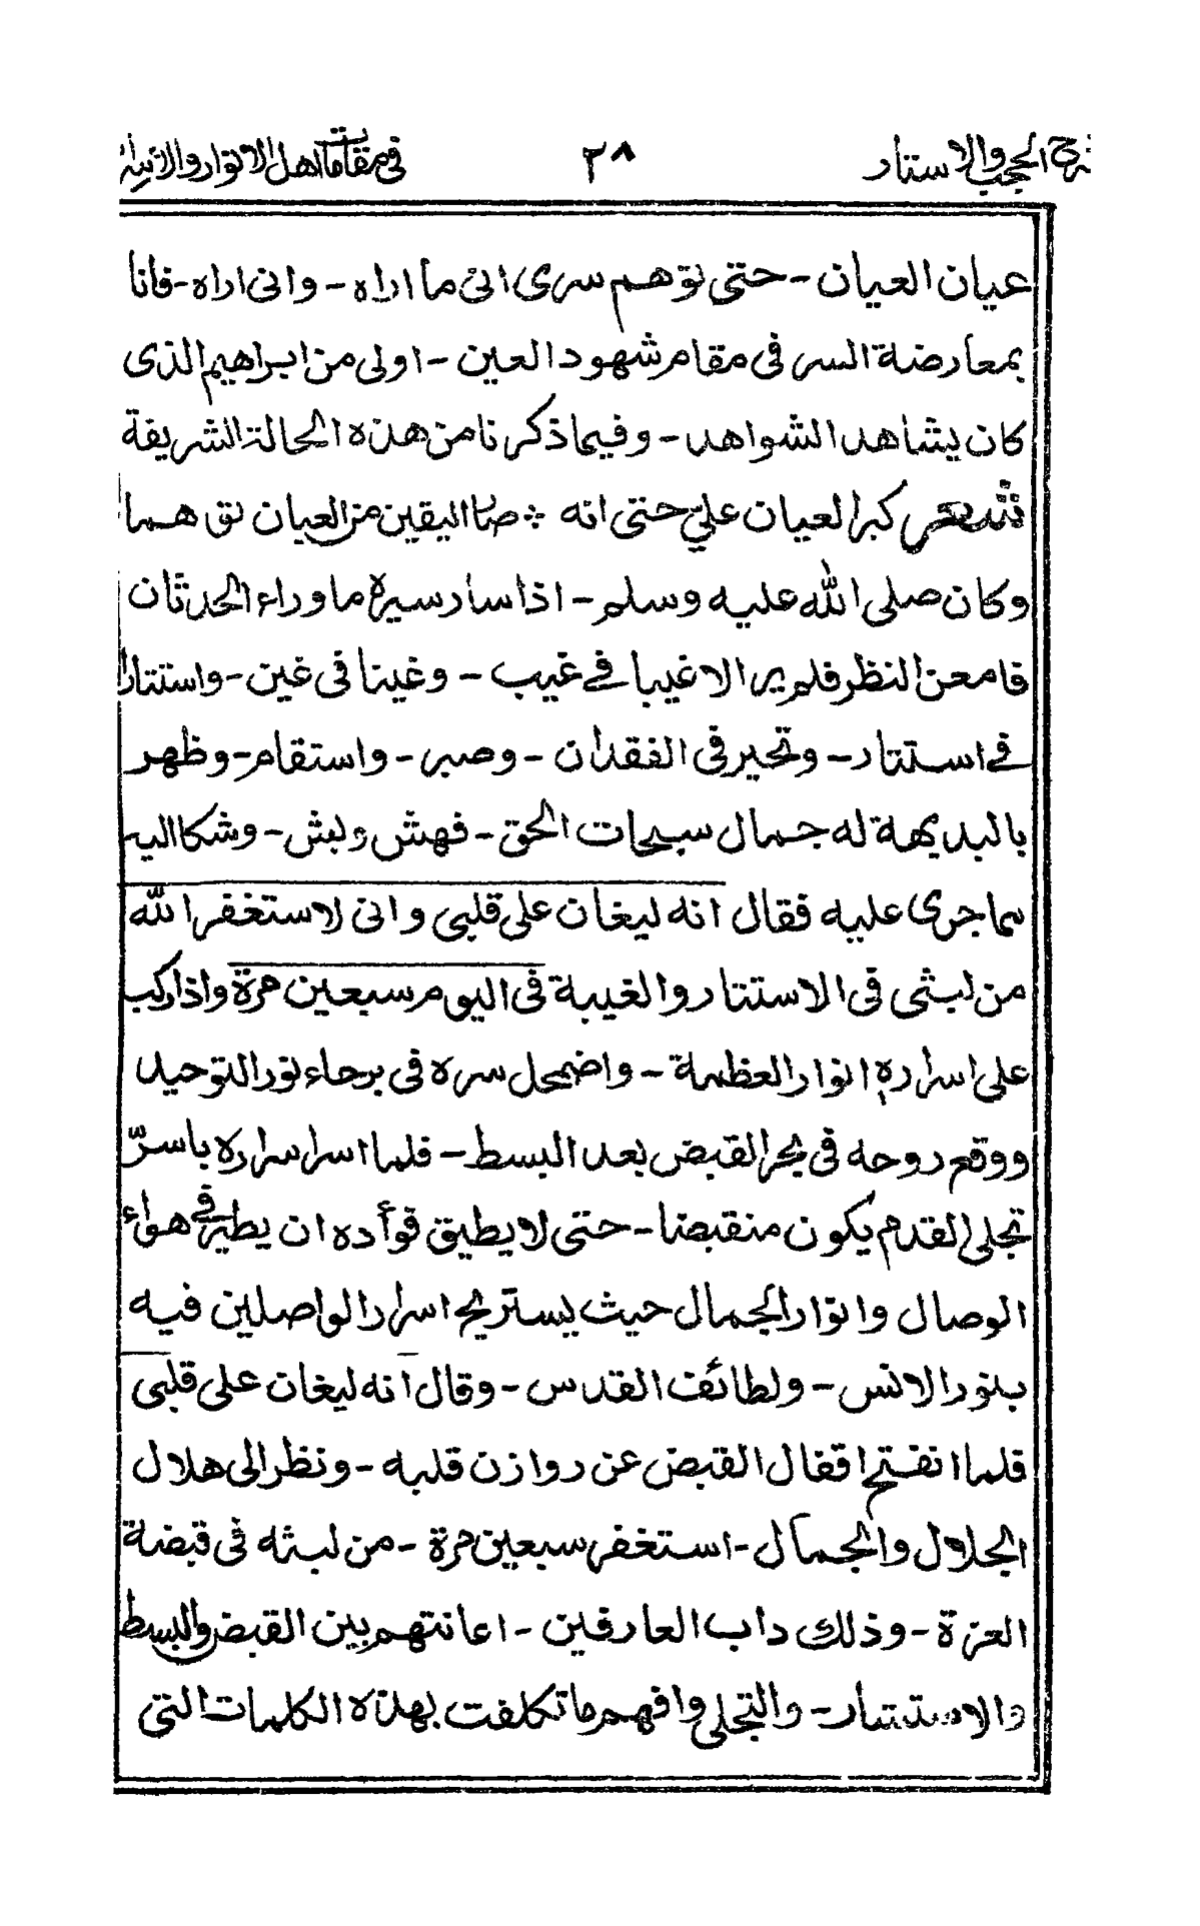 شرح الحجب والاستار ٢٨ فى مقامات اهل الانوار والاسرار
عيان العيان - حتى توهم سرى انى ما اراه - وانى اراه - فانا
بمعارضة السر فى مقام شهود العين - اولى من ابراهيم الذى
كان يشاهد الشواهد - وفيما ذكرنا من هذه الحالة الشريفة
شعر كبر العيان علىّ حتى انه ٭ صار اليقين من العيان توهما
وكان صلى الله عليه وسلم - اذا سار سيرة ما وراء الحدثان
فامعن النظر فلم ير الا غيبا فے غيب - وغينا فى غين - واستتارا
فے استتار - وتحير فى الفقدان - وصبر - واستقام - وظهر
بالبديهة له جمال سبحات الحق - فهش وبش - وشكا اليه
بما جرى عليه فقال انه ليغان على قلبى وانى لاستغفر الله
من لبثى فى الاستتار والغيبة فى اليوم سبعين مرة واذا ركب
على اسراره انوار العظمة - واضمحل سره فى برحاء نور التوحيد
ووقع روحه فى بحر القبض بعد البسط - فلما اسر اسراره باسرّ
تجلى القدم يكون منقبضا - حتى لا يطيق فوأده ان يطير فے هواء
الوصال وانوار الجمال حيث يستريح اسرار الواصلين فيه
بنور الانس - ولطائف القدس - وقال انه ليغان على قلبى
فلما انفتح اقفال القبض عن روازن قلبه - ونظر الى هلال
الجلال والجمال - استغفر سبعين مرة - من لبثه فى قبضة
العزة - وذلك داب العارفين - اعانتهم بين القبض والبسط
والاستتار - والتجلى وافهم ما تكلفت بهذه الكلمات التى